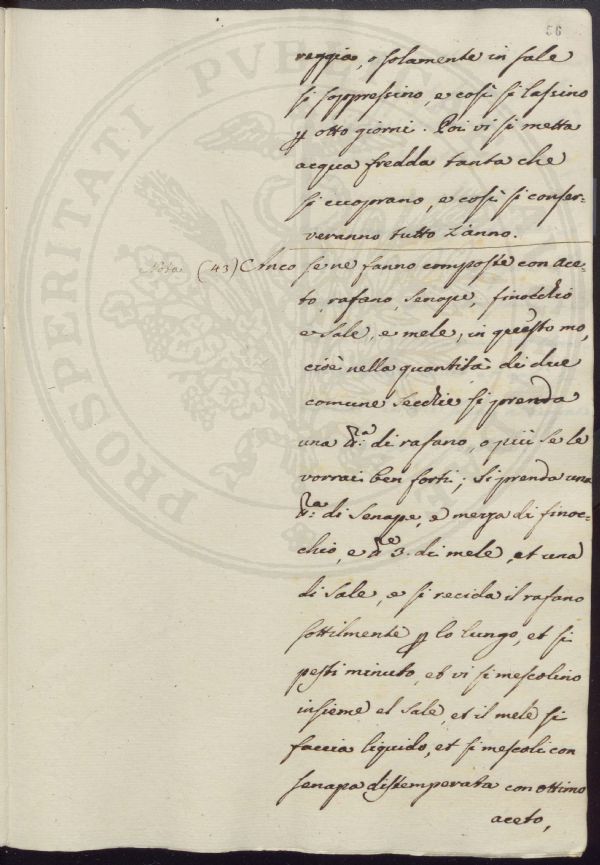 56
reggia, o solamente in sale
si soppressino, e così si lassino
p otto giorni. Poi vi si metta
acqua fredda tanta che
si cuoprano, e così si conser-
veranno tutto l'anno.
Nota (43) Anco se ne fanno composte con ace-
to, rafano, senape, finocchio
e sale, e mele, in questo mo,
cioè nella quantità di due
comune secchie si prenda
una lra: di rafano, o più se le
vorrai ben forti; si prenda una
lra: di senape, e mezza di finoc-
chio, e lre 3. di mele, et una
di sale, e si recida il rafano
sottilmente p lo lungo, et si
pesti minuto, et vi si mescolino
insieme el sale, et il mele si
faccia liquido, et si mescoli con
senapa distemperata con ottimo
aceto,
PROSPERITATI PVBLIC